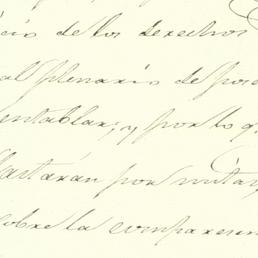 de los derechos
al plenario de pose
entablar; y por lo q
por mitad
sobre la comparesen